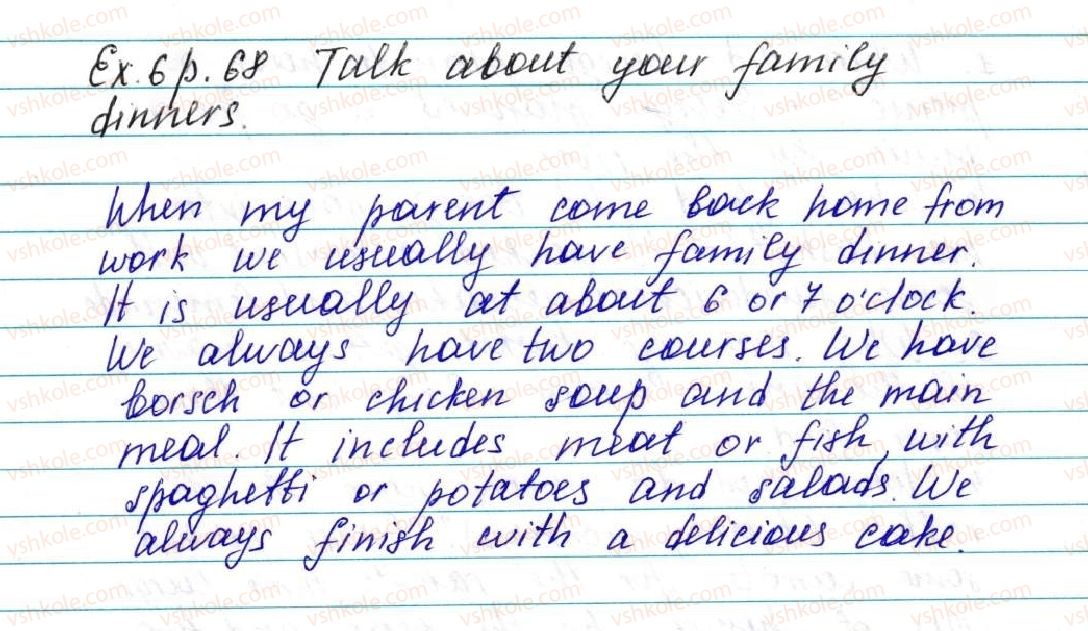 Ex. 6 p. 68 Talk about your family
dinners.
When my parent come back home from
work we usually have family dinner.
It is usually at about 6 or 7 o'clock.
We always have two courses. We have
borsch or chicken soup and the main
meal. It includes meat or fish, with
spaghetti or potatoes and salads. We
always finish with a delicious cake.